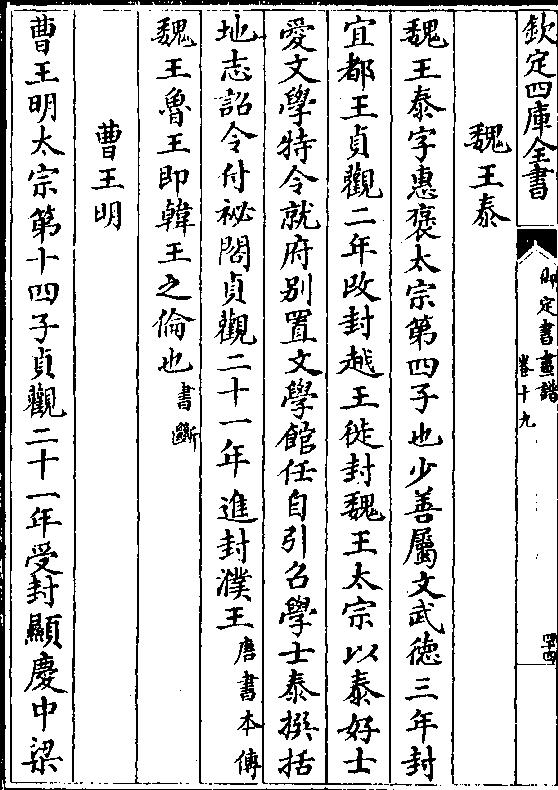 欽定四庫全書
御定書畫譜
卷十九
四十四
魏王泰
魏王泰字惠襃太宗第四子也少善屬文武德三年封
宜都王貞觀二年改封越王徙封魏王太宗以泰好士
愛文學特令就府别置文學館任自引召學士泰撰括
地志詔令付祕閣貞觀二十一年進封濮王唐書本傳
魏王魯王即韓王之倫也書斷
曹王明
曹王明太宗第十四子貞觀二十一年受封顯慶中梁